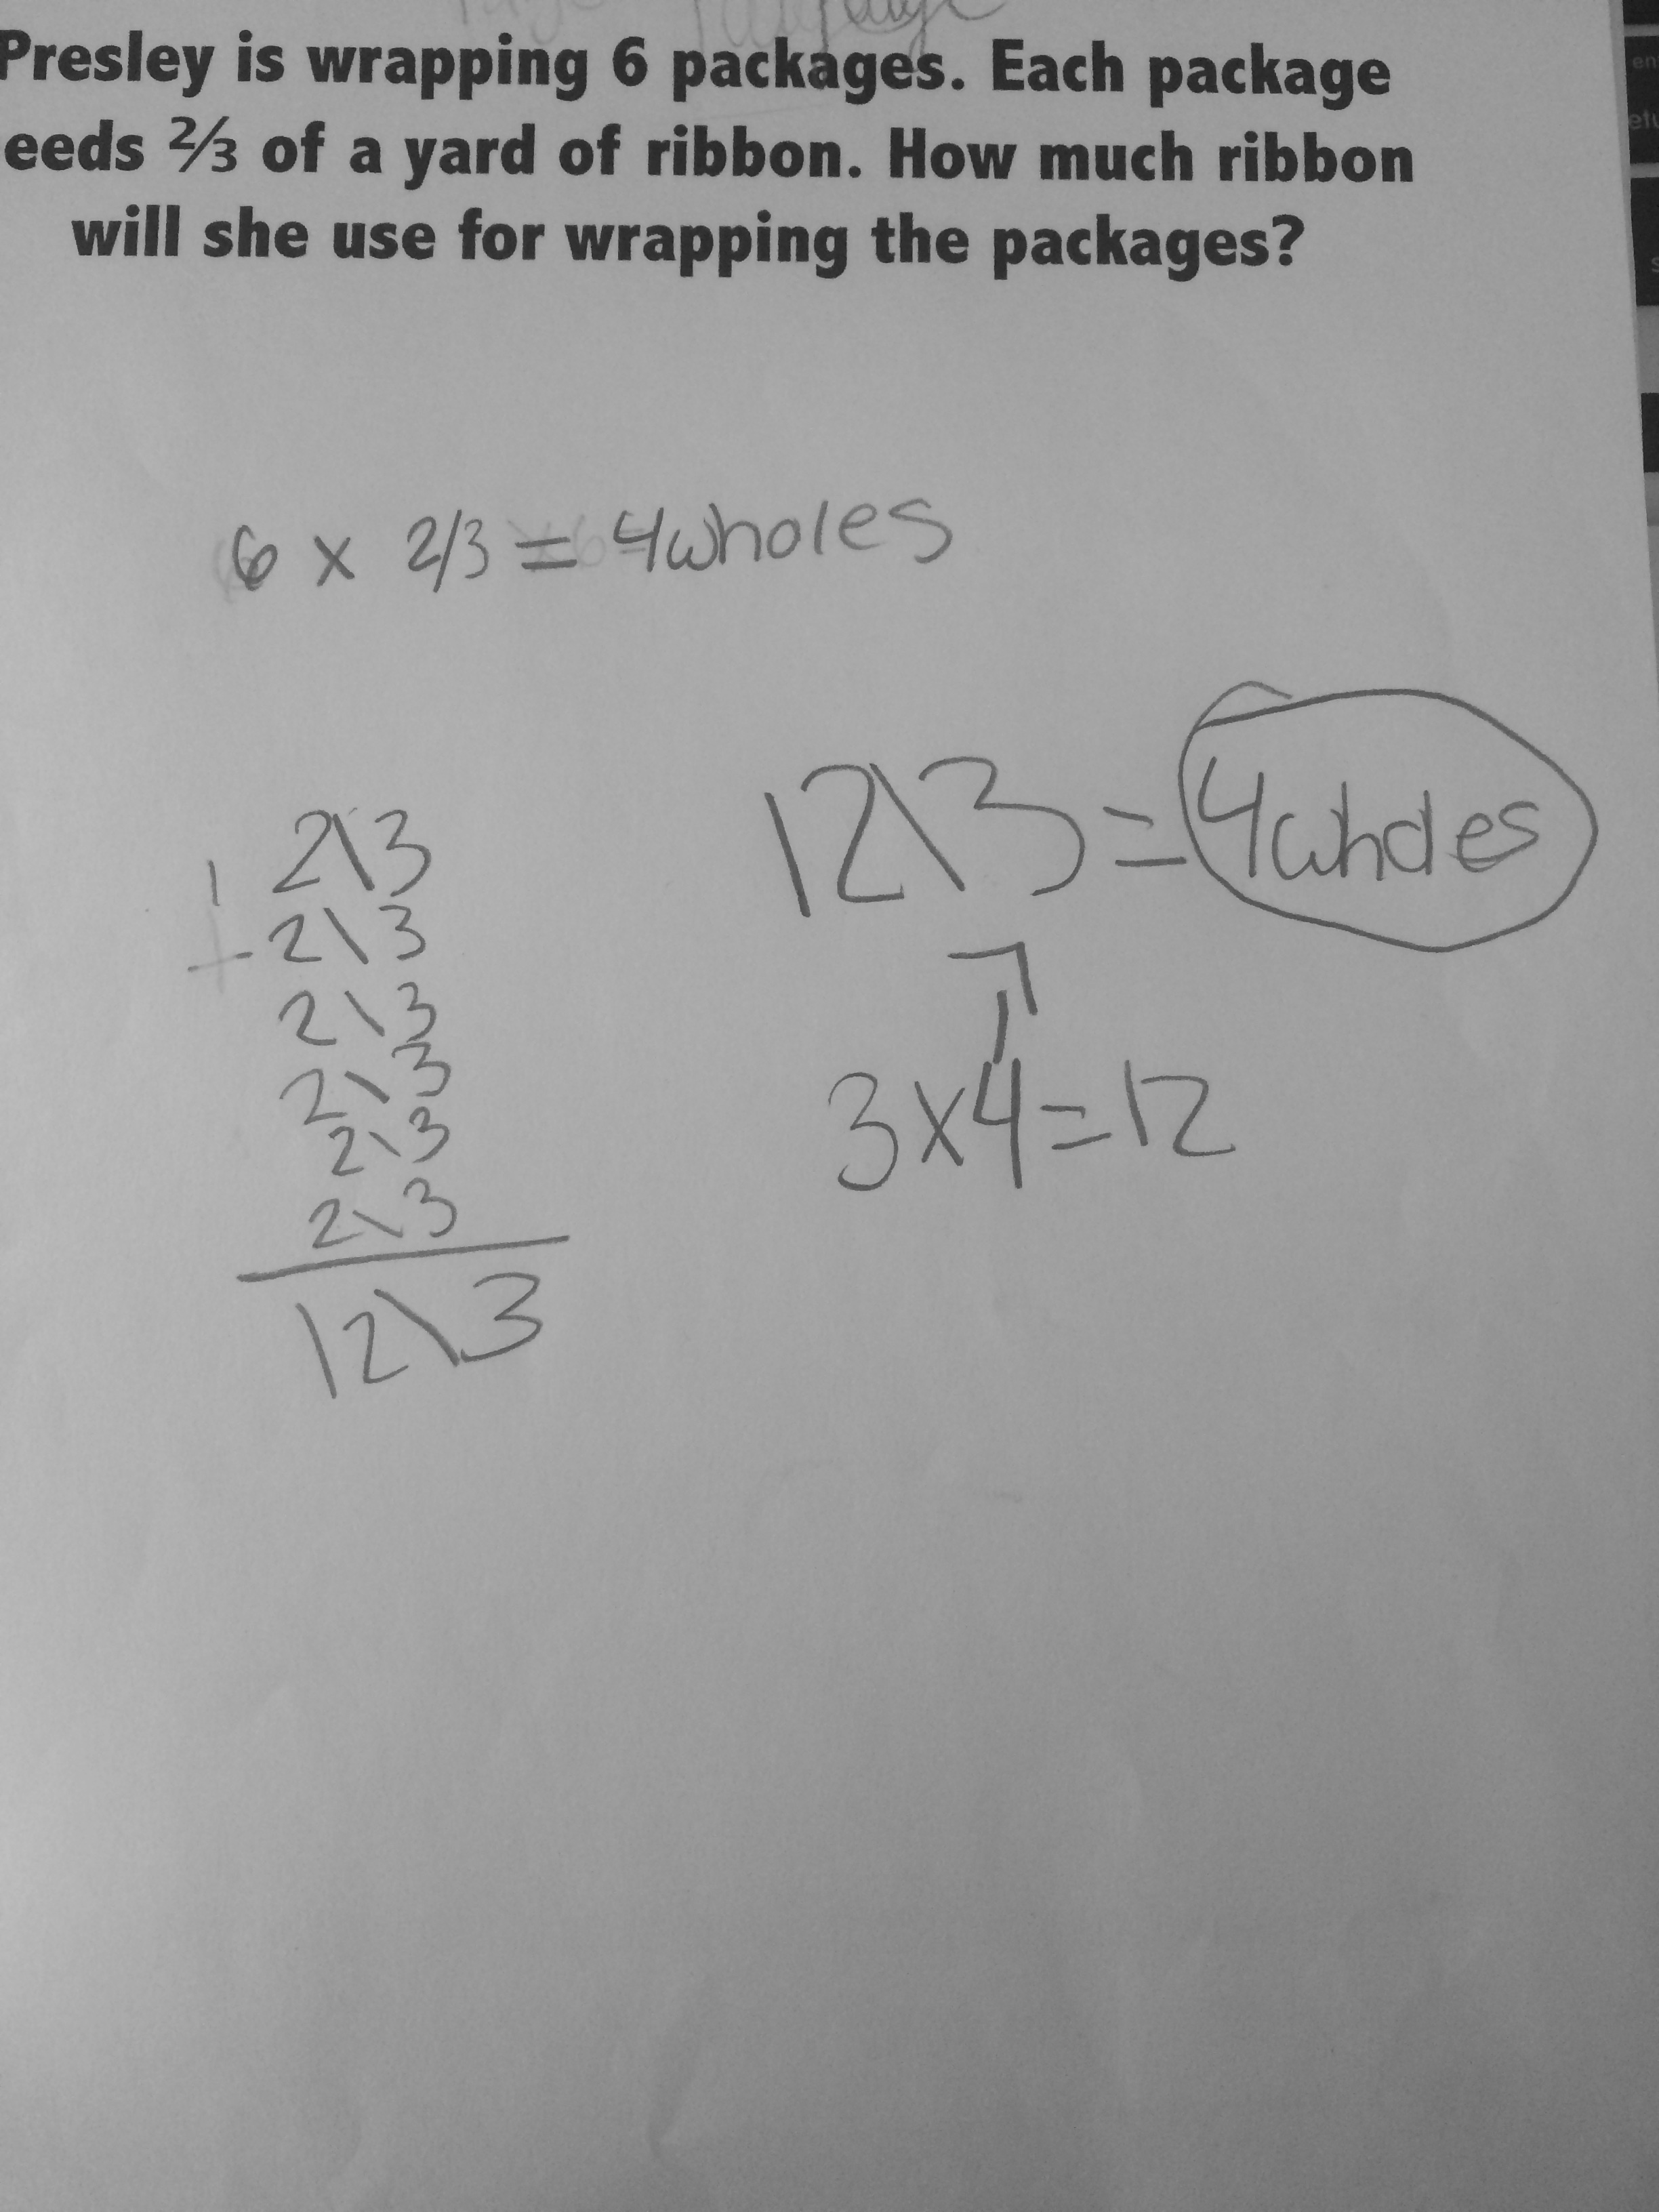 Presley is wrapping 6 packages. Each package
eeds ⅔ of a yard of ribbon. How much ribbon
will she use for wrapping the packages?
6 x 2/3 = 4wholes
2\3
+ 2\3
2\3
2\3
2\3
2\3
12\3
12\3 = 4wholes
3x4=12